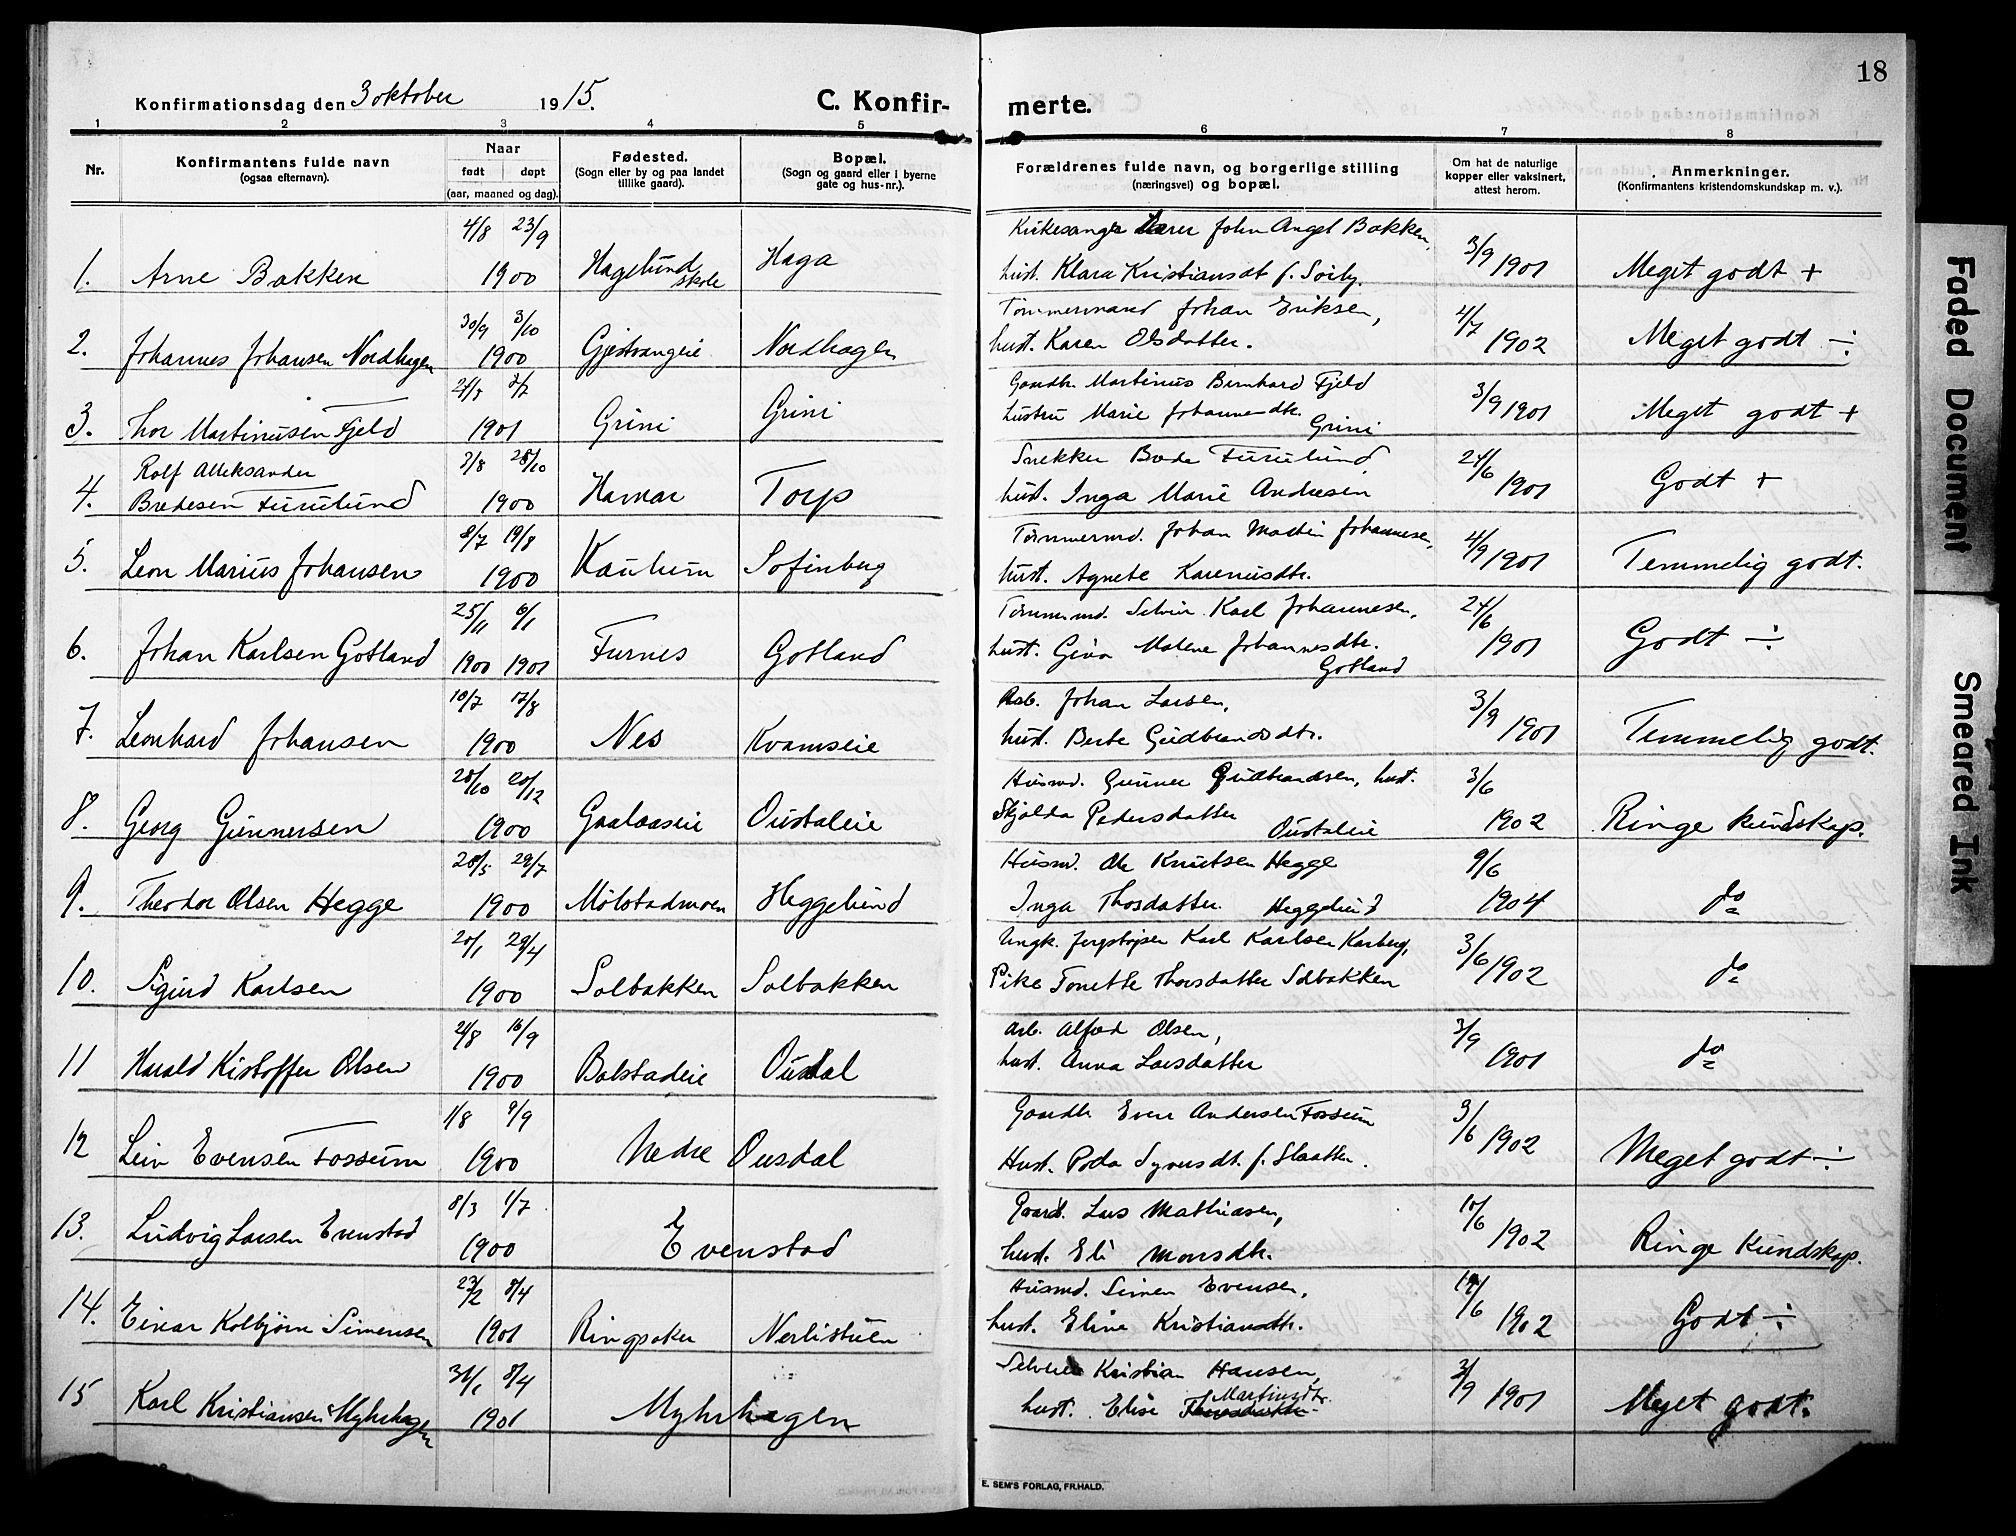 18
Konfirmationsdag den 3 oktober 1915. C. Konfir- merte.
1 2 3 4 5 6 7 8
Nr. Konfirmantens fulde navn (ogsaa efternavn). Naar født døpt (aar, maaned og dag). Fødested. (Sogn eller by og paa landet tillike gaard). Bopæl. (Sogn og gaard eller i byerne gate og hus-nr.). Forældrenes fulde navn, og borgerlige stilling (næringsvei) og bopæl. Om hat de naturlige kopper eller vaksinert, attest herom. Anmerkninger. (Konfirmantens kristendomskundskap m. v.).
4/8 23/9 Kirkesanger Lærer John Angel Bakken,
1. Arne Bakken 1900 Hagelund skole Haga hust. Klara Kristiansdt f. Sørby. 3/9 1901 Meget godt +
30/9 3/10 Tømmermand Johan Eriksen,
2. Johannes Johansen Nordhagen 1900 Gjestvangeie Nordhagen hust. Karen Olsdatter. 4/7 1902 Meget godt ÷
Gaardbr. Martinus Bernhard Fjeld
3. Thor Martinusen Fjeld 1901 Grini Grini hustru Marie Johannesdtr. Grini 3/9 1901 Meget godt +
Rolf Alleksander 28/10 Snekker Brede Furulund
4. Bredesen Furulund 1900 Hamar Torp hust. Inga Marie Andresen 24/6 1901 Godt +
8/7 19/8 Tømmermd. Johan Martin Johannesen,
5. Leon Marius Johansen 1900 Kauhim Sofienberg hust. Agnete Karenusdtr. 4/9 1901 Temmelig godt.
25/11 6/1 Karl Johannesen,
6. Johan Karlsen Gotland 1900 1901 Furnes Gotland hust. Gina Malene Johannesdtr. Gotland 24/6 1901 Godt ÷
10/7 17/8 Arb. Johan Larsen,
7. Leonhard Johansen 1900 Nes Kvamseie hust. Berte Gudbrandsdtr. 3/9 1901 Temmelig godt.
28/10 20/12 Husmd. Gunner Gudbrandsen, hust.
8. Georg Gunnersen 1900 Gaalaaseie Oustaleie Skjolda Pedersdatter Oustaleie 3/6 1902 Ringe kundskap.
28/5 29/7 Husmd. Ole Knutsen Hegge
9. Theodor Olsen Hegge 1900 Molstadmoen Heggelund Inga Thosdatter Heggelund 9/6 1904 do
20/1 29/4 Ungk. Karl Karlsen Karberg,
10. Sigurd Karlsen 1900 Solbakken Solbakken Pike Tonette Thorsdatter Solbakken 3/6 1902 do
16/9 Arb. Alfred Olsen,
11 Harald Kistoffer Olsen 1900 Bolstadeie Ousdal hust. Anna Larsdatter 3/9 1901 do
1/8 9/9 Gaardbr. Even Andersen Fossum
12 Leiv Evensen Fossum 1900 Nedre Ousdal Hust. Syversdt. f. Slaatten. 3/6 1902 Meget godt ÷
8/3 1/7 Gaardb. Lars Mathiasen,
13. Ludvig Larsen Evenstad 1900 Evenstad hust. Eli Monsdtr. 1902 Ringe Kundskap.
23/2 8/4 Husmd. Simen Evensen,
14. Einar Kolbjørn Simensen 1901 Ringsaker Nerlistuen hust. Eline Kristiansdtr. 1902 Godt ÷
31/1 8/4 Selveier Kristian Hansen,
15 Karl Kristiansen Myhrhagen 1901 Myhrhagen hust. Elise Martinsdtr. 3/9 1901 Meget godt.
E. SEM'S FORLAG, FR.HALD.
Faded Document
Smeared Ink